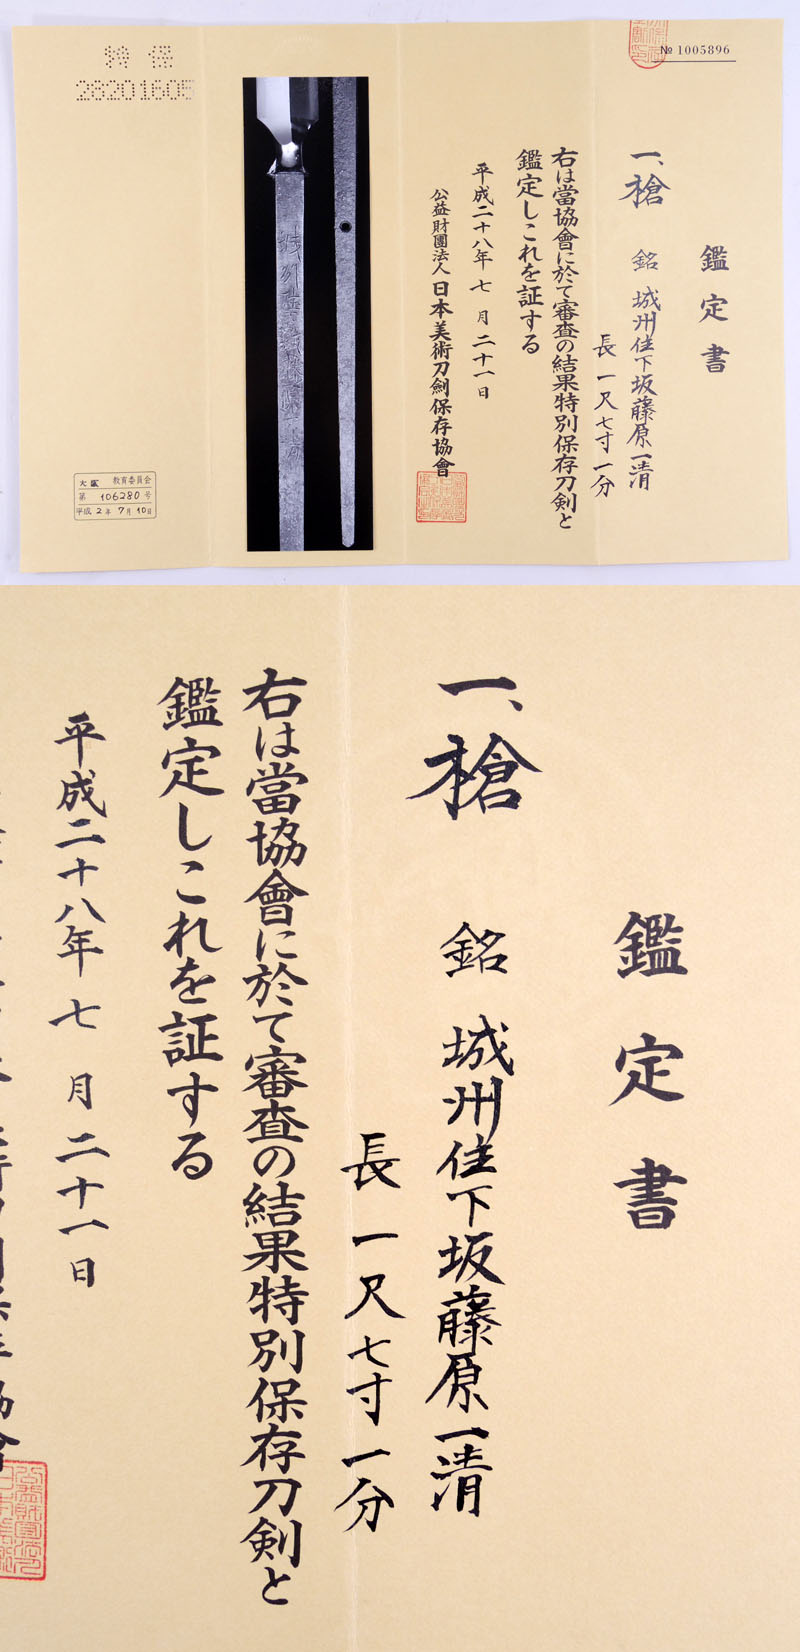 № 1005896
鑑定書
一、槍 銘 城州住下坂藤原一清
長 一尺七寸一分
右は當協會に於て審査の結果特別保存刀剣と
鑑定しこれを証する
平成二十八年 七 月 二十一日
公益財團法人日本美術刀劍保存協會
特 保
28201605
大阪 教育委員会
第 106280 号
平成 2 年 7 月 10 日
鑑定書
一、槍 銘 城州住下坂藤原一清
長 一尺七寸一分
右は當協會に於て審査の結果特別保存刀剣と
鑑定しこれを証する
平成二十八年 七 月 二十一日